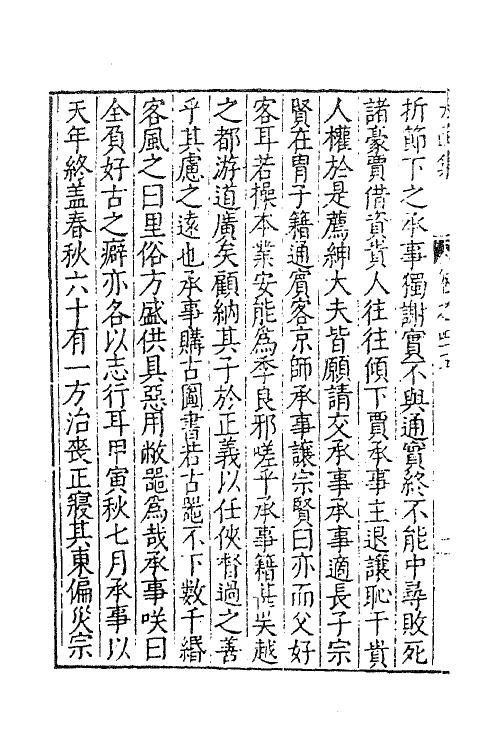 折節下之承事獨謝實不與通實終不能中尋敗死
諸豪賈借資貴人往往傾下賈承事主退讓恥干貴
人權於是薦紳大夫皆願請交承事承事適長子宗
賢在胄子籍通賓客京師承事讓宗賢曰亦而父好
客耳若操本業安能為季良邪嗟乎承事籍吳越
之都游道廣矣顧納其子於正義以任俠督過之善
乎其慮之遠也承事購古圖書若古器不下數千緡
客風之曰里俗方盛供具惡用敝器為哉承事咲曰
全負好古之癖亦各以志行耳甲寅秋七月承事以
天年終盖春秋六十有一方治喪正寢其東偏災宗